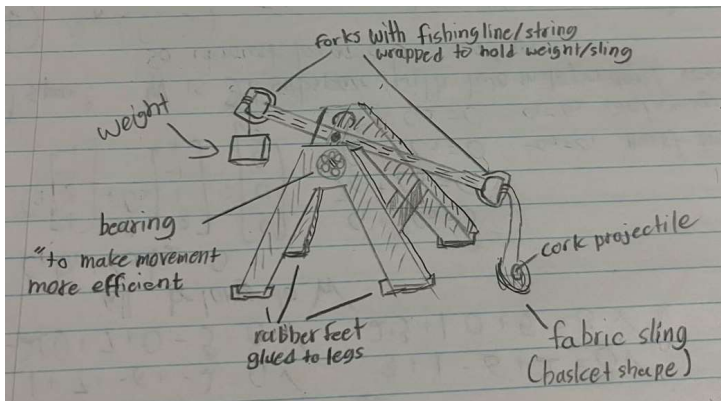 forks with fishing line/string
wrapped to hold weight/sling
weight
bearing
"to make movement
more efficient
cork projectile
rubber feet
glued to legs
fabric sling
(basket shape)